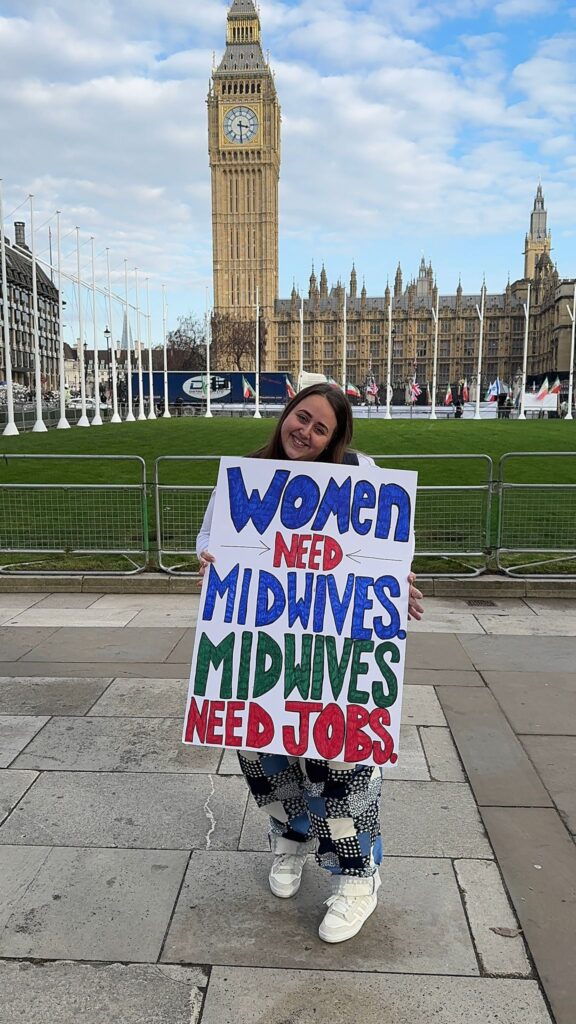 Women
NEED
MIDWIVES.
MIDWIVES
NEED JOBS.